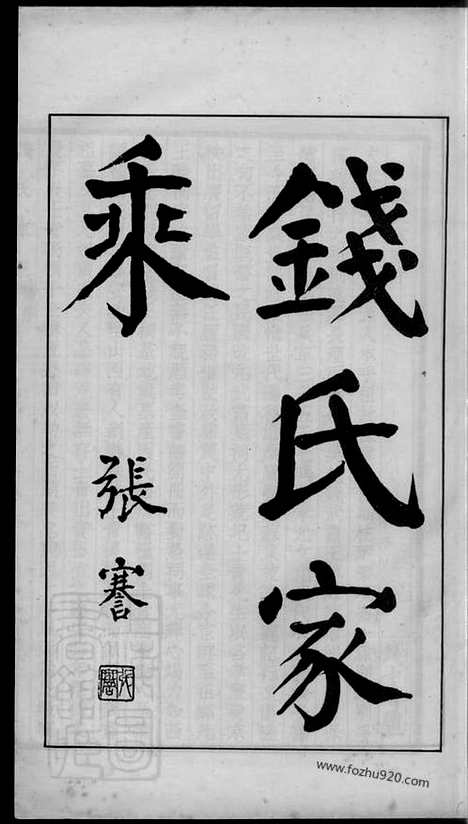 錢氏家
乘
張謇
www.fozhu920.com